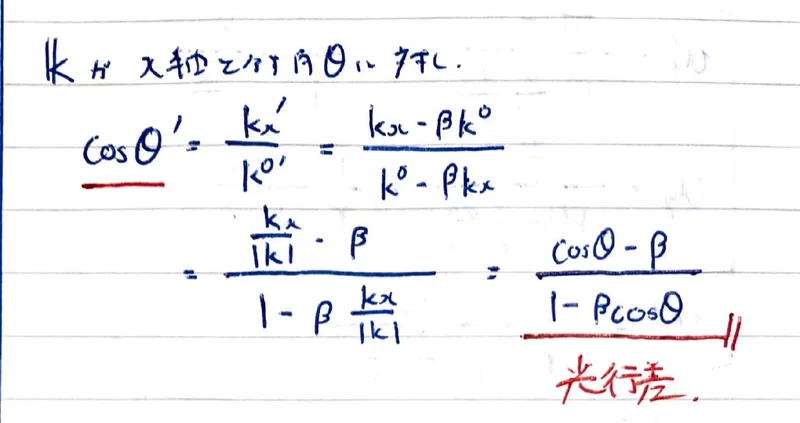 𝕜 が x軸となす角θに対し.
cosθ' = kx'/k⁰' = (kx - βk⁰)/(k⁰ - βkx)
= (kx/|𝕜| - β)/(1 - β kx/|𝕜|) = (cosθ - β)/(1 - βcosθ)
光行差.